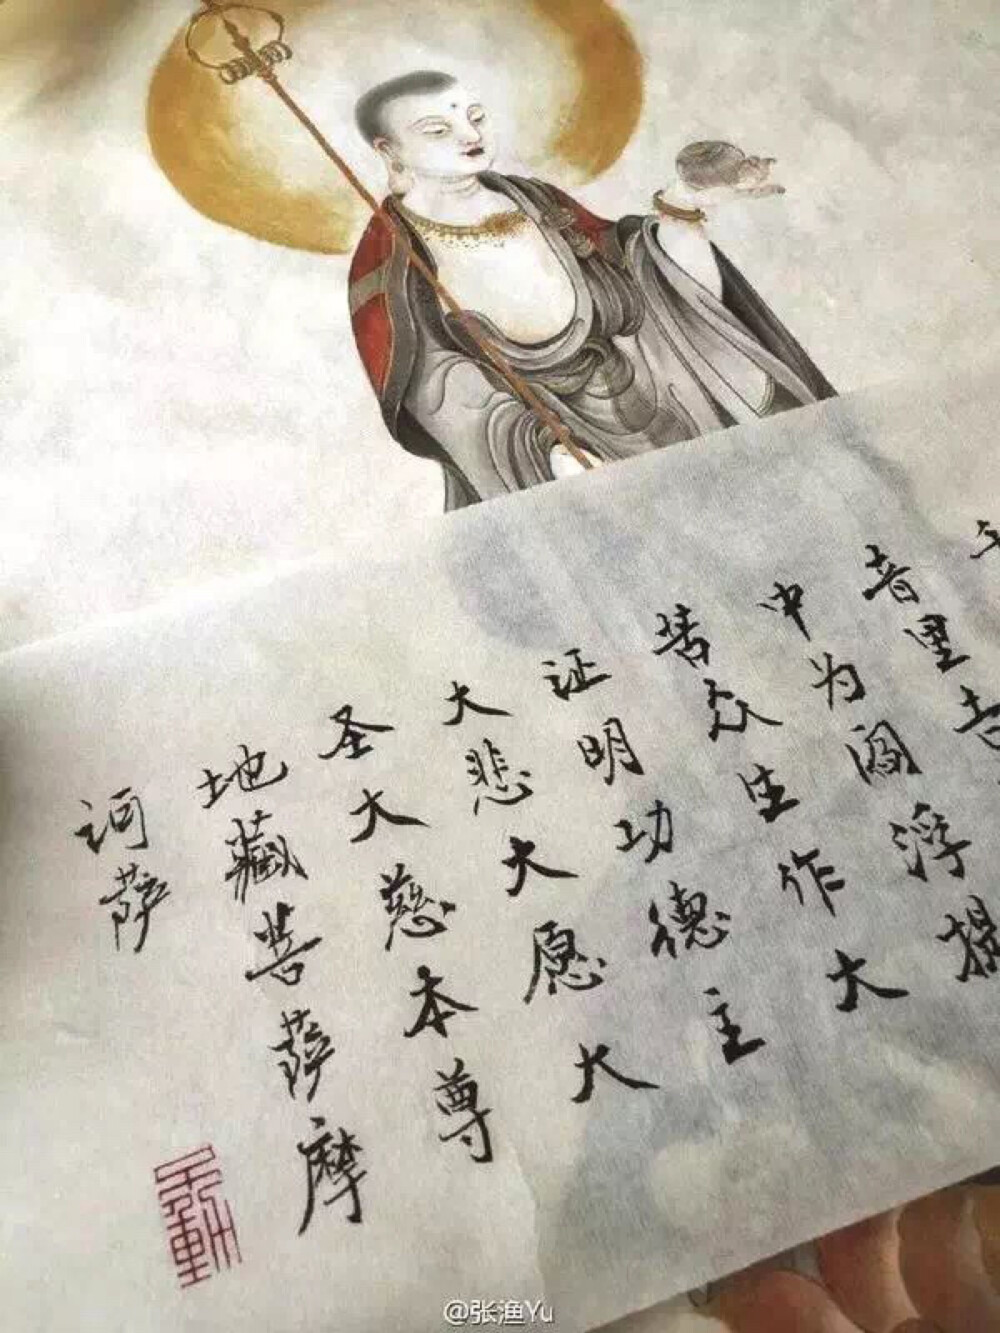 音里
中为阎浮
苦众生作大
证明功德主
大悲大愿大
圣大慈本尊
地藏菩萨摩
诃萨
@张渔Yu